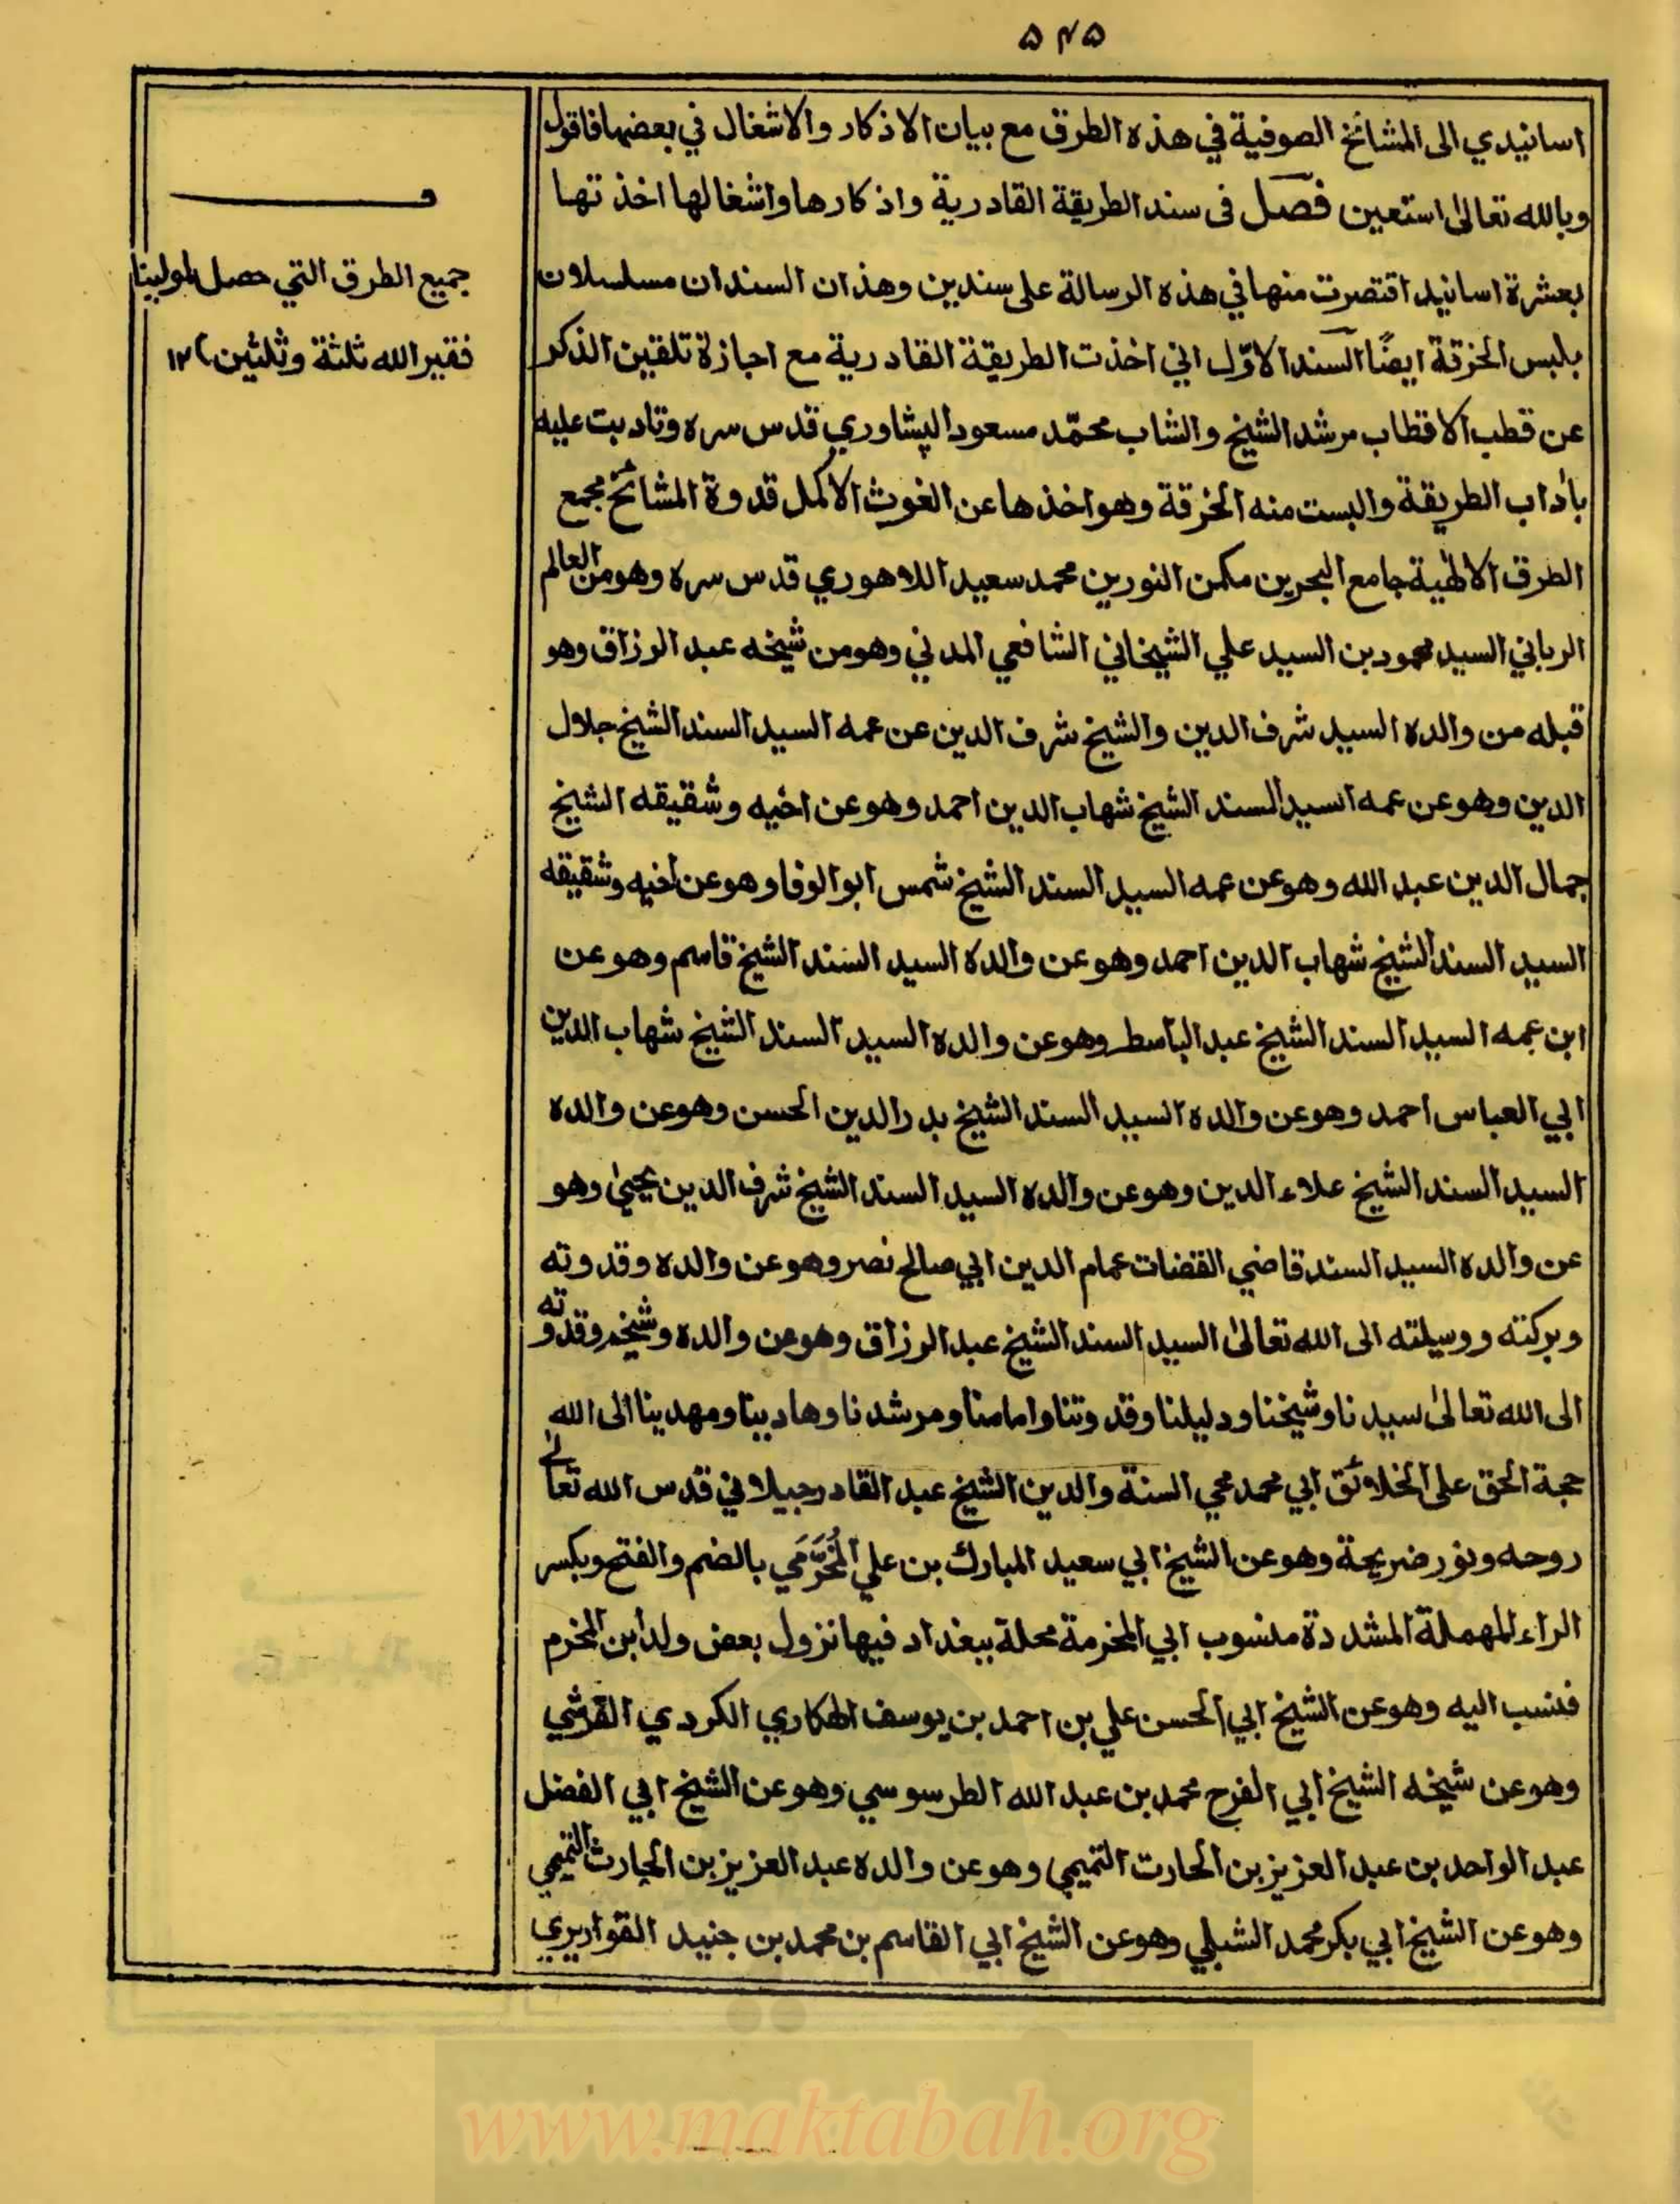 ۵۴۵
اسانيدي الى المشائخ الصوفية في هذه الطرق مع بيان الاذكار والاشغال في بعضها فاقول
وبالله تعالىٰ استعين فصل فى سند الطريقة القادرية واذكارها واشغالها اخذتها
بعشرة اسانيد اقتصرت منها في هذه الرسالة على سندين وهذان السندان مسلسلان
بلبس الخرقة ايضًا السند الاوّل اني اخذت الطريقة القادرية مع اجازة تلقين الذكر
عن قطب الاقطاب مرشد الشيخ والشاب محمّد مسعود الپشاوري قدس سره وتادبت عليه
باٰداب الطريقة والبست منه الخرقة وهو اخذها عن الغوث الاكمل قدوة المشائخ مجمع
الطرق الالٰهية جامع البحرين مكمن النورين محمد سعيد اللاهوري قدس سره وهو من العالم
الرباني السيد محمود بن السيد علي الشيخاني الشافعي المدني وهو من شيخه عبد الرزاق وهو
قبله من والده السيد شرف الدين والشيخ شرف الدين عن عمه السيد السند الشيخ جلال
الدين وهو عن عمه السيد السند الشيخ شهاب الدين احمد وهو عن اخيه وشقيقه الشيخ
جمال الدين عبد الله وهو عن عمه السيد السند الشيخ شمس ابو الوفا وهو عن اخيه وشقيقه
السيد السند الشيخ شهاب الدين احمد وهو عن والده السيد السند الشيخ قاسم وهو عن
ابن عمه السيد السند الشيخ عبد الباسط وهو عن والده السيد السند الشيخ شهاب الدين
ابي العباس احمد وهو عن والده السيد السند الشيخ بدر الدين الحسن وهو عن والده
السيد السند الشيخ علاء الدين وهو عن والده السيد السند الشيخ شرف الدين يحيىٰ وهو
عن والده السيد السند قاضي القضات عمام الدين ابي صالح نصر وهو عن والده وقدوته
وبركته ووسيلته الى الله تعالىٰ السيد السند الشيخ عبد الرزاق وهو عن والده وشيخه وقدوته
الى الله تعالىٰ سيدنا وشيخنا ودليلنا وقدوتنا وامامنا ومرشدنا وهادينا ومهدينا الى الله
حجة الحق على الخلائق ابي محمد محي السنة والدين الشيخ عبد القادر جيلاني قدس الله تعالىٰ
روحه ونور ضريحة وهو عن الشيخ ابي سعيد المبارك بن علي المُخَرَّمَي بالضم والفتح وبكسر
الراء المهملة المشددة منسوب الي المخرمة محلة ببغداد فيها نزول بعض ولد ابن المخرم
فنسب اليه وهو عن الشيخ ابي الحسن علي بن احمد بن يوسف الهكاري الكردي القرشي
وهو عن شيخه الشيخ ابي الفرح محمد بن عبد الله الطرسوسي وهو عن الشيخ ابي الفضل
عبد الواحد بن عبد العزيز بن الحارت التميمي وهو عن والده عبد العزيز بن الحارث التميمي
وهو عن الشيخ ابي بكر محمد الشبلي وهو عن الشيخ ابي القاسم بن محمد بن جنيد القواريري
جميع الطرق التي حصل لمولينا
فقير الله ثلثة وثلثين ١٢
www.maktabah.org